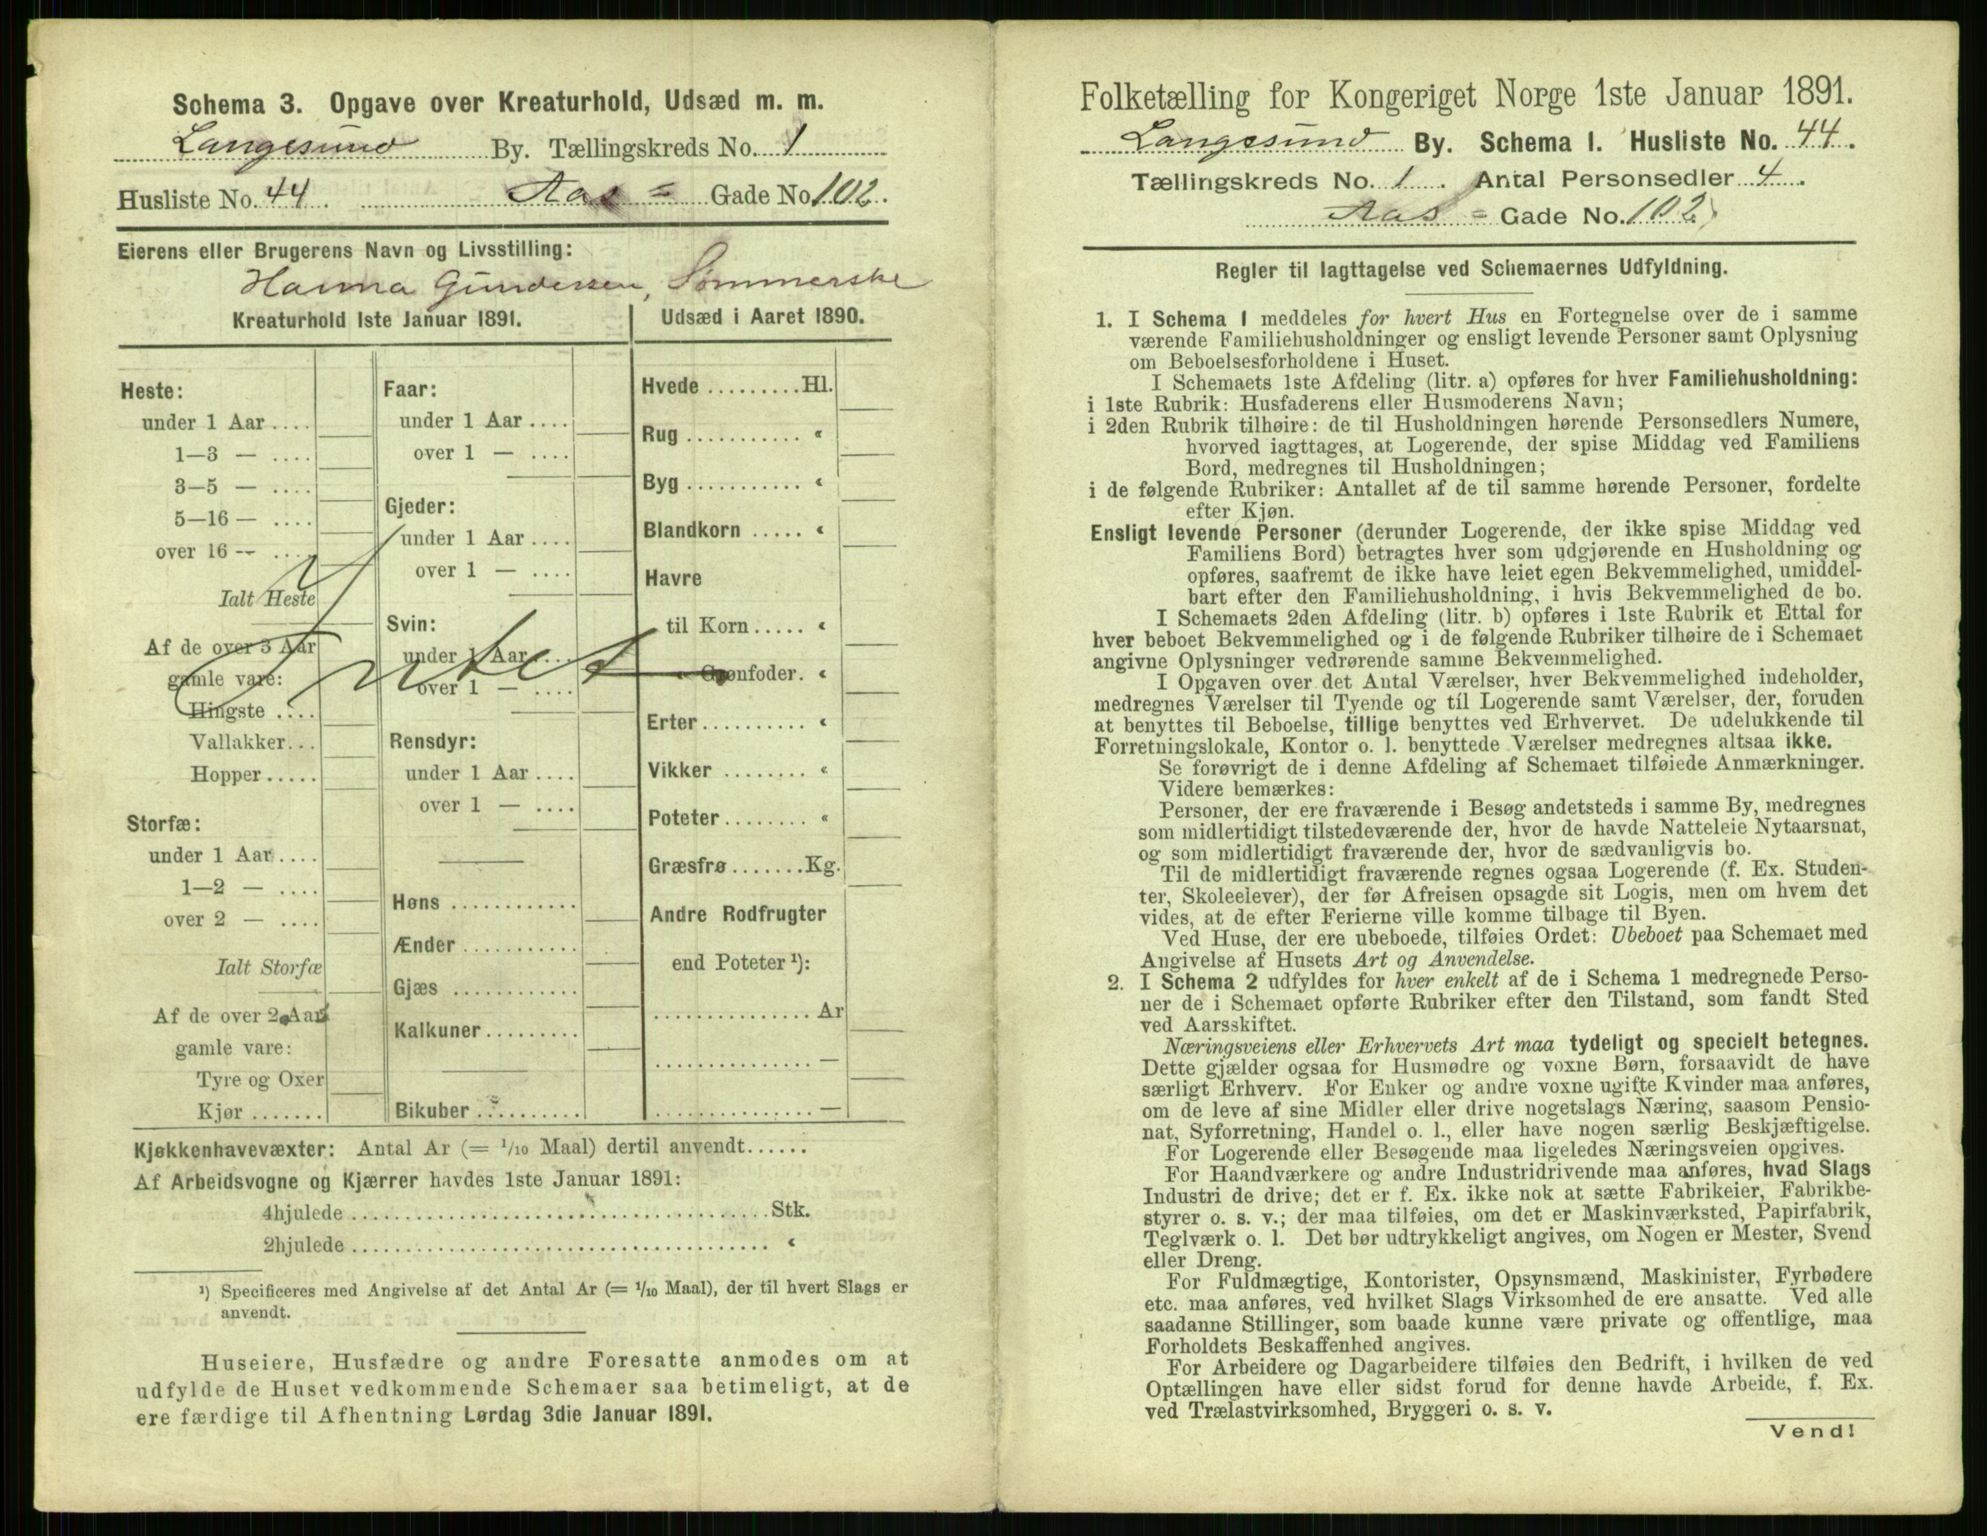 Schema 3. Opgave over Kreaturhold, Udsæd m. m.
Langesund By. Tællingskreds No. 1
Husliste No. 44. Aas = Gade No. 102.
Eierens eller Brugerens Navn og Livsstilling:
Hanna Gundersen, Sømmerske
Kreaturhold 1ste Januar 1891.
Heste:
under 1 Aar ....
1—3 — ....
3—5 — ....
5—16 — ....
over 16 — ....
Ialt Heste
Af de over 3 Aar
gamle vare:
Hingste ....
Vallakker...
Hopper.....
Storfæ:
under 1 Aar....
1—2 — ....
over 2 — ....
Ialt Storfæ
Af de over 2 Aar
gamle vare:
Tyre og Oxer
Kjør .......
Faar:
under 1 Aar ....
over 1 — ....
Gjeder:
under 1 Aar ....
over 1 — ....
Svin:
under 1 Aar ....
over 1 — ....
Intet
Rensdyr:
under 1 Aar ....
over 1 — ....
Høns ............
Ænder ...........
Gjæs ............
Kalkuner.........
Bikuber ..........
Udsæd i Aaret 1890.
Hvede .........Hl.
Rug ........... “
Byg ........... “
Blandkorn ..... “
Havre
til Korn..... “
“ Grønfoder. “
Erter.......... “
Vikker ........ “
Poteter........ “
Græsfrø.......Kg.
Andre Rodfrugter
end Poteter ¹):
............... Ar
............... —
............... —
Kjøkkenhavevæxter: Antal Ar (= 1/10 Maal) dertil anvendt......
Af Arbeidsvogne og Kjærrer havdes 1ste Januar 1891:
4hjulede ........................................Stk.
2hjulede ........................................ “
¹) Specificeres med Angivelse af det Antal Ar (= 1/10 Maal), der til hvert Slags er
anvendt.
Huseiere, Husfædre og andre Foresatte anmodes om at
udfylde de Huset vedkommende Schemaer saa betimeligt, at de
ere færdige til Afhentning Lørdag 3die Januar 1891.
Folketælling for Kongeriget Norge 1ste Januar 1891.
Langesund By. Schema I. Husliste No. 44.
Tællingskreds No. 1. Antal Personsedler 4.
Aas = Gade No. 102.
Regler til Iagttagelse ved Schemaernes Udfyldning.
1. I Schema 1 meddeles for hvert Hus en Fortegnelse over de i samme
værende Familiehusholdninger og ensligt levende Personer samt Oplysning
om Beboelsesforholdene i Huset.
I Schemaets 1ste Afdeling (litr. a) opføres for hver Familiehusholdning:
i 1ste Rubrik: Husfaderens eller Husmoderens Navn;
i 2den Rubrik tilhøire: de til Husholdningen hørende Personsedlers Numere,
hvorved iagttages, at Logerende, der spise Middag ved Familiens
Bord, medregnes til Husholdningen;
i de følgende Rubriker: Antallet af de til samme hørende Personer, fordelte
efter Kjøn.
Ensligt levende Personer (derunder Logerende, der ikke spise Middag ved
Familiens Bord) betragtes hver som udgjørende en Husholdning og
opføres, saafremt de ikke have leiet egen Bekvemmelighed, umiddel-
bart efter den Familiehusholdning, i hvis Bekvemmelighed de bo.
I Schemaets 2den Afdeling (litr. b) opføres i 1ste Rubrik et Ettal for
hver beboet Bekvemmelighed og i de følgende Rubriker tilhøire de i Schemaet
angivne Oplysninger vedrørende samme Bekvemmelighed.
I Opgaven over det Antal Værelser, hver Bekvemmelighed indeholder,
medregnes Værelser til Tyende og til Logerende samt Værelser, der, foruden
at benyttes til Beboelse, tillige benyttes ved Erhvervet. De udelukkende til
Forretningslokale, Kontor o. l. benyttede Værelser medregnes altsaa ikke.
Se forøvrigt de i denne Afdeling af Schemaet tilføiede Anmærkninger.
Videre bemærkes:
Personer, der ere fraværende i Besøg andetsteds i samme By, medregnes
som midlertidigt tilstedeværende der, hvor de havde Natteleie Nytaarsnat,
og som midlertidigt fraværende der, hvor de sædvanligvis bo.
Til de midlertidigt fraværende regnes ogsaa Logerende (f. Ex. Studen-
ter, Skoleelever), der før Afreisen opsagde sit Logis, men om hvem det
vides, at de efter Ferierne ville komme tilbage til Byen.
Ved Huse, der ere ubeboede, tilføies Ordet: Ubeboet paa Schemaet med
Angivelse af Husets Art og Anvendelse.
2. I Schema 2 udfyldes for hver enkelt af de i Schema 1 medregnede Perso-
ner de i Schemaet opførte Rubriker efter den Tilstand, som fandt Sted
ved Aarsskiftet.
Næringsveiens eller Erhvervets Art maa tydeligt og specielt betegnes.
Dette gjælder ogsaa for Husmødre og voxne Børn, forsaavidt de have
særligt Erhverv. For Enker og andre voxne ugifte Kvinder maa anføres,
om de leve af sine Midler eller drive nogetslags Næring, saasom Pensio-
nat, Syforretning, Handel o. l., eller have nogen særlig Beskjæftigelse.
For Logerende eller Besøgende maa ligeledes Næringsveien opgives.
For Haandværkere og andre Industridrivende maa anføres, hvad Slags
Industri de drive; det er f. Ex. ikke nok at sætte Fabrikeier, Fabrikbe-
styrer o. s. v.; der maa tilføies, om det er Maskinværksted, Papirfabrik,
Teglværk o. l. Det bør udtrykkeligt angives, om Nogen er Mester, Svend
eller Dreng.
For Fuldmægtige, Kontorister, Opsynsmænd, Maskinister, Fyrbødere
etc. maa anføres, ved hvilket Slags Virksomhed de ere ansatte. Ved alle
saadanne Stillinger, som baade kunne være private og offentlige, maa
Forholdets Beskaffenhed angives.
For Arbeidere og Dagarbeidere tilføies den Bedrift, i hvilken de ved
Optællingen have eller sidst forud for denne havde Arbeide, f. Ex.
ved Trælastvirksomhed, Bryggeri o. s. v.
Vend!